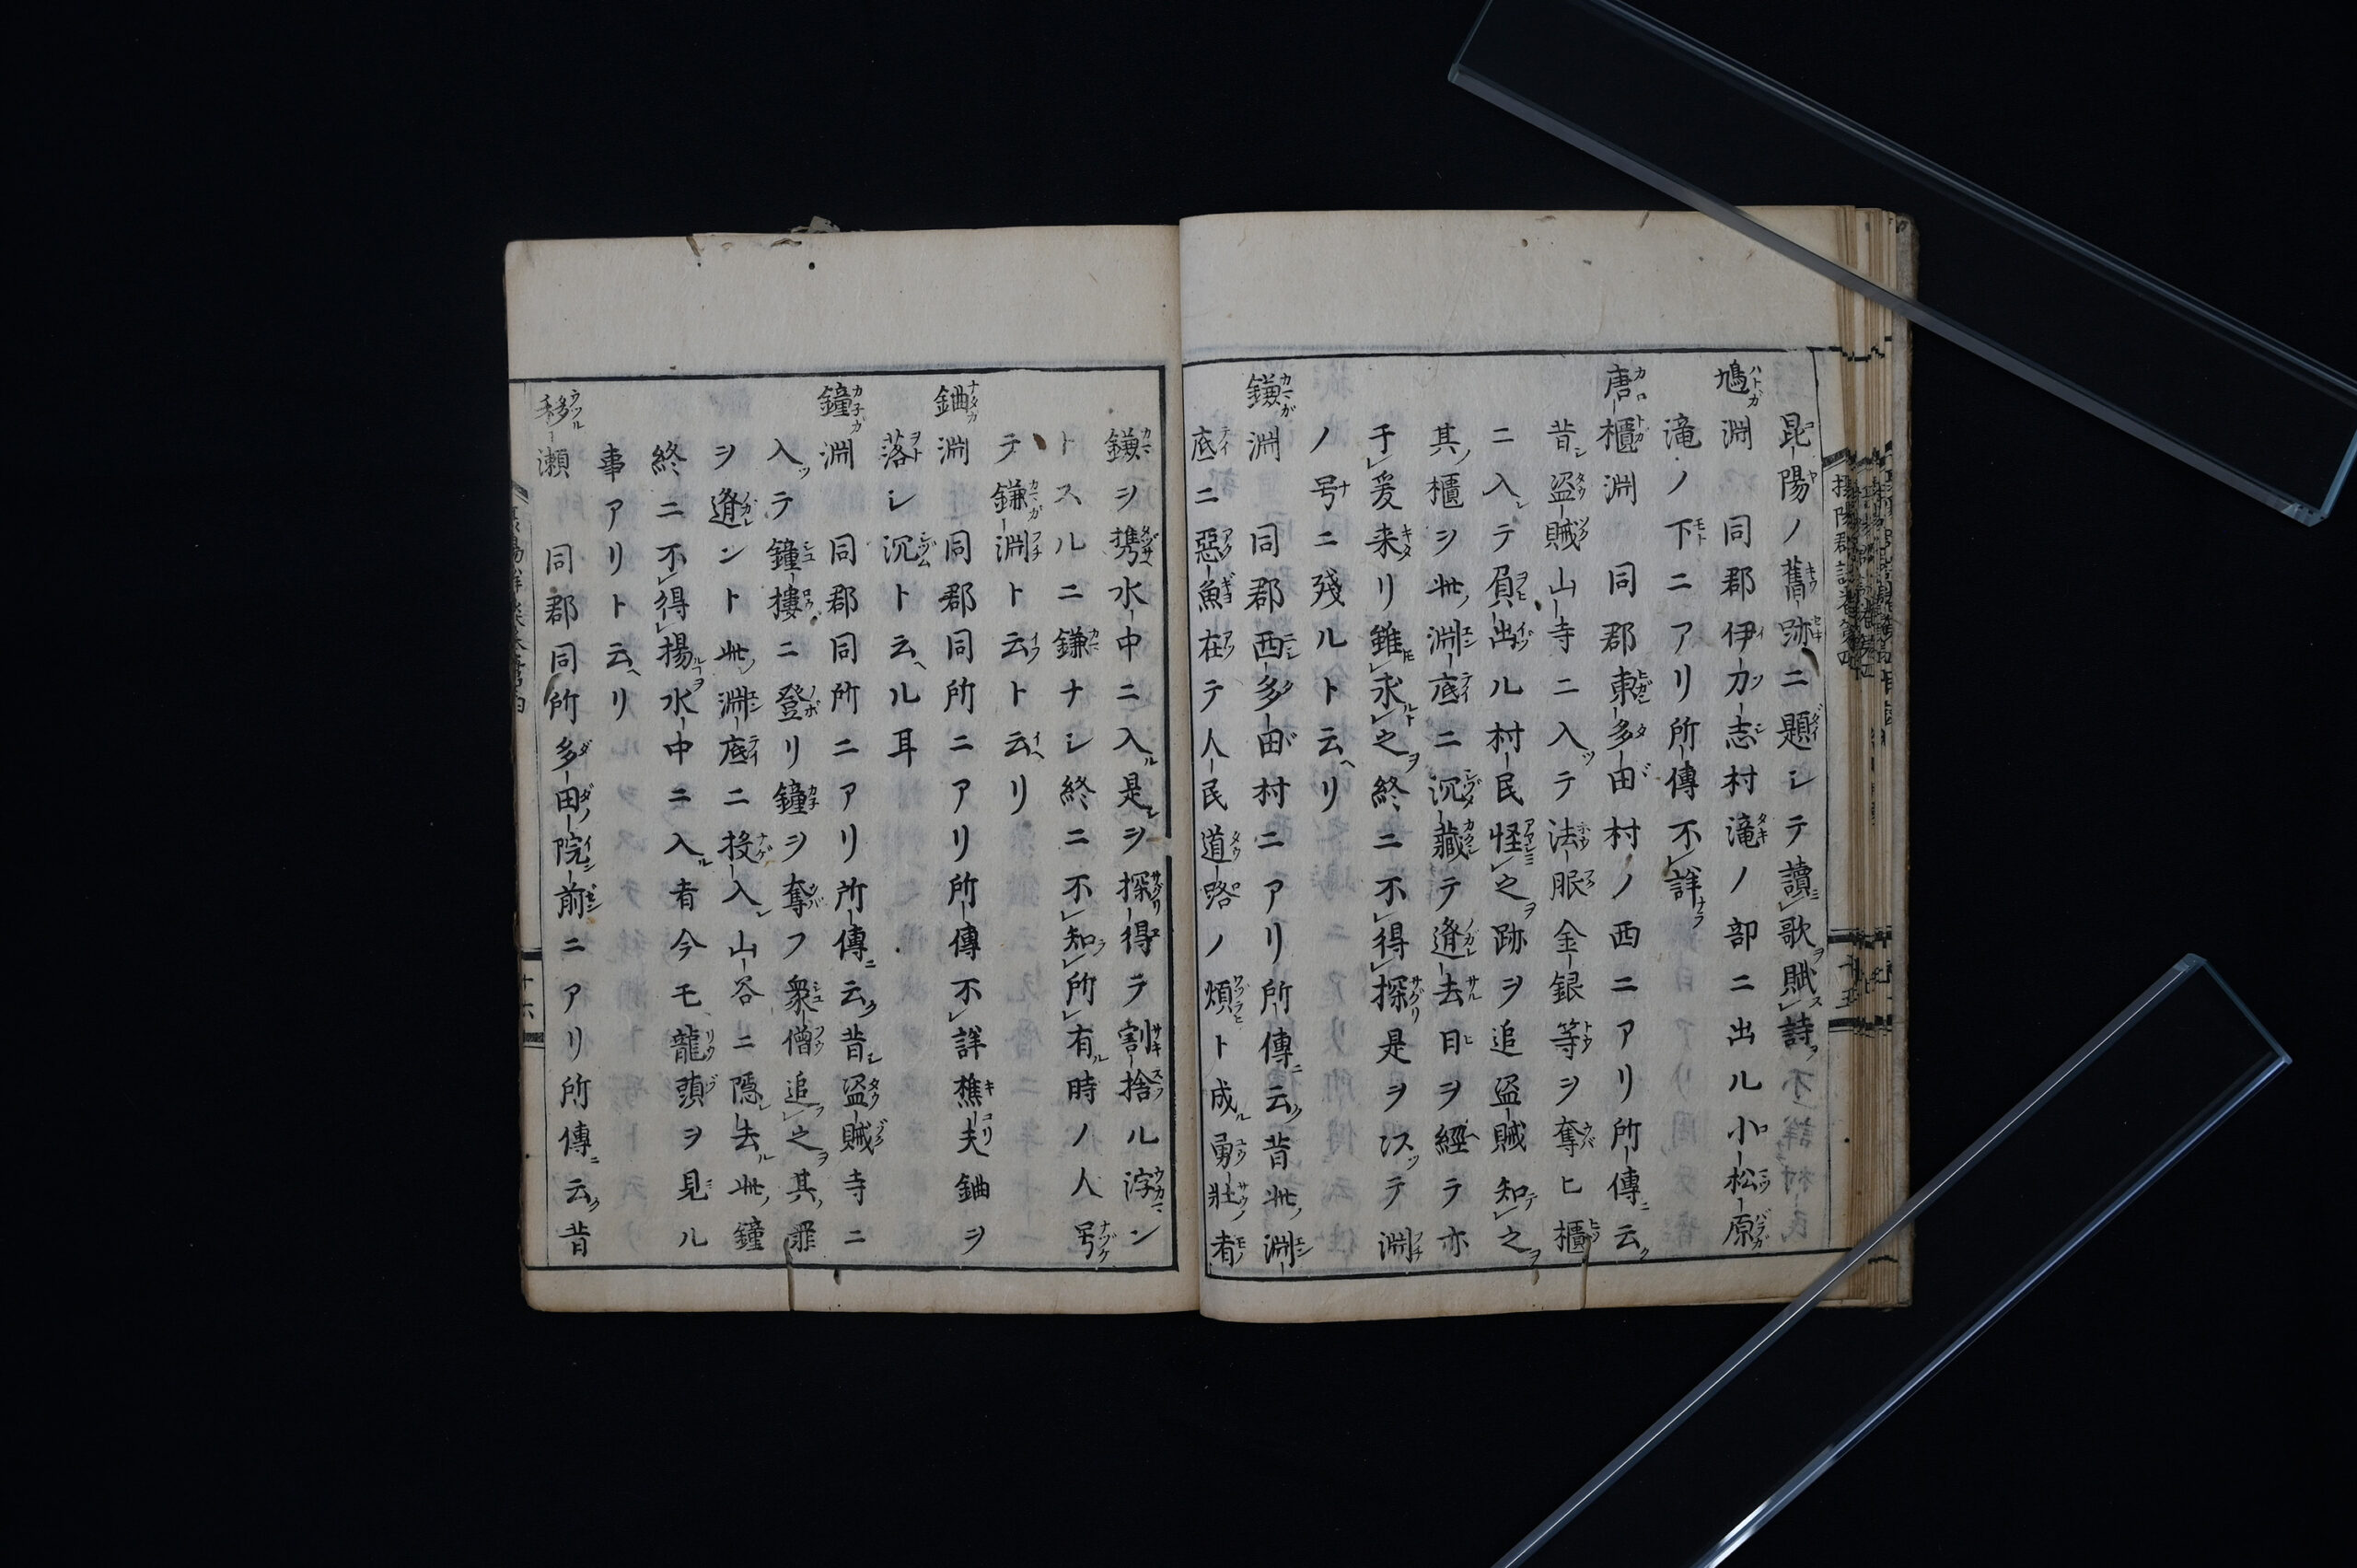 昆陽ノ舊跡ニ題シテ讀歌賦詩
鳩淵　同郡伊力志村滝ノ部ニ出ル小松原
滝ノ下ニアリ所傳不詳
唐櫃淵　同郡東多田村ノ西ニアリ所傳云
昔盗賊山寺ニ入テ法眼金銀等ヲ奪ヒ櫃
ニ入テ負出ル村民怪之跡ヲ追盗賊知之
其櫃ヲ此淵底ニ沉藏テ遁去日ヲ經テ亦
于爰来リ雖求之終ニ不得探是ヲ以テ淵
ノ号ニ殘ルト云リ
鎌淵　同郡西多田村ニアリ所傳云昔此淵
底ニ惡魚在テ人民道路ノ煩ト成勇壯者
鎌ヲ携水中ニ入是ヲ探得テ割捨ル浮ン
トスルニ鎌ナシ終ニ不知所有時ノ人号
テ鎌淵ト云ト云リ
鈿淵　同郡同所ニアリ所傳不詳樵夫鈿ヲ
落シ沉ト云ル耳
鐘淵　同郡同所ニアリ所傳云昔盗賊寺ニ
入テ鐘樓ニ登リ鐘ヲ奪フ衆僧追之其罪
ヲ遁ント此淵底ニ投入山谷ニ隱去此鐘
終ニ不得揚水中ニ入者今モ龍頭ヲ見ル
事アリト云リ
移瀬　同郡同所多田院前ニアリ所傳云昔
十六